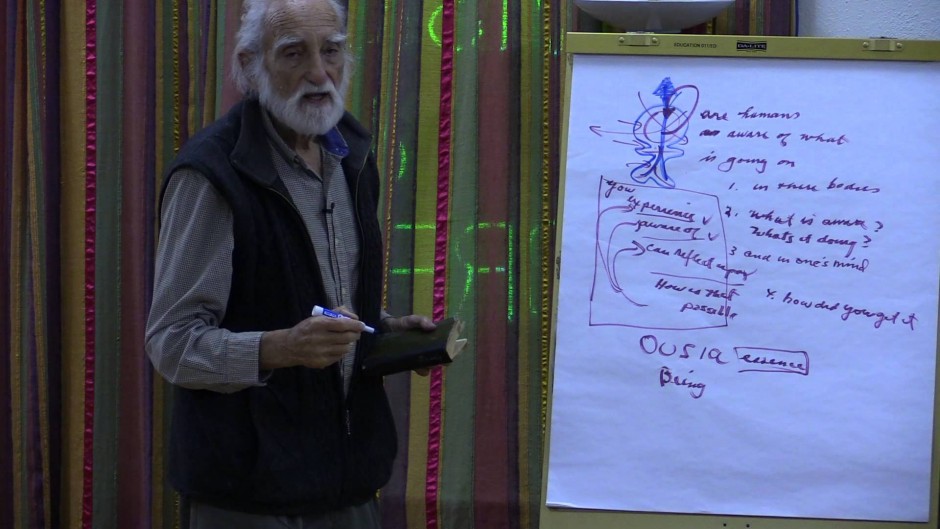 DA-LITE
are humans
aware of what
is going on
1. in their bodies
2. what is aware?
what's it doing?
3 and in one's mind
4. how did you get it
you
experience
aware of
can reflect upon
How is that
possible
OUSIA essence
Being